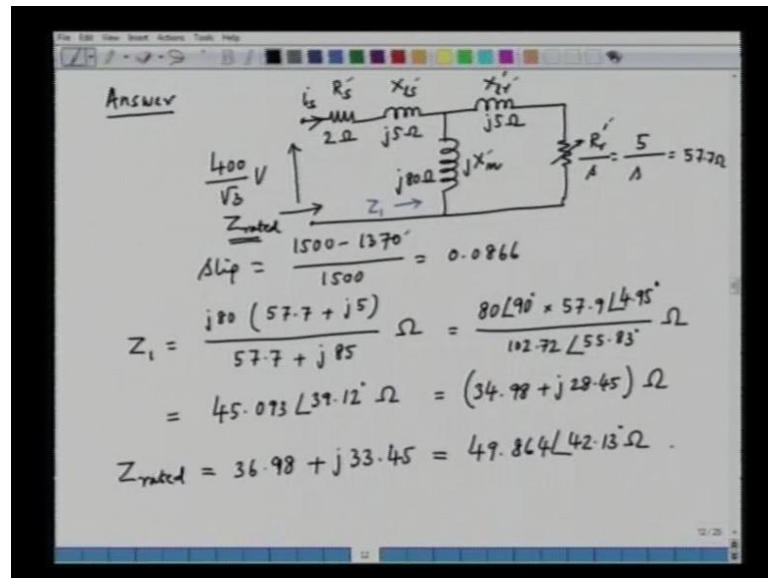 File Edit View Insert Actions Tools Help
Answer
i_s R_s' X_ls' X_lr'
2Ω j5Ω j5Ω
400/√3 V
j80Ω jX_m' R_r'/s = 5/s = 57.7Ω
Z_1 →
Z_rated
Slip = (1500 - 1370)/1500 = 0.0866
Z_1 = j80 (57.7 + j5)/(57.7 + j85) Ω = (80∠90° × 57.9∠4.95°)/(102.72∠55.83°) Ω
= 45.093∠39.12° Ω = (34.98 + j28.45) Ω
Z_rated = 36.98 + j33.45 = 49.864∠42.13° Ω.
12/25
12